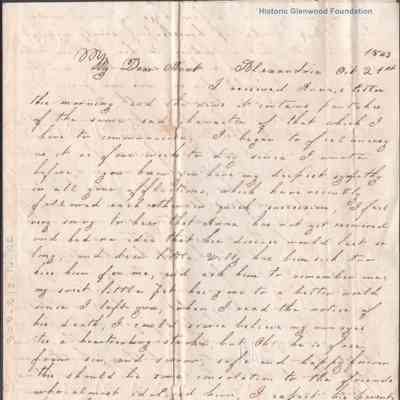 Historic Glenwood Foundation
1843
My Dear Aunt Alexandria Oct 21st
I received Anna's letter
this morning and the news it contains partakes
of the same sad character of that which I
have to communicate, I began to feel uneasy
as it is four weeks to day since I wrote
before you know you have my deepest sympathy
in all your afflictions, which have recently
followed each other in quick succession, I feel
very sorry to hear that Anna has not yet recovered
and had no idea that her disease would last so
long, and dear little Willy has been sick too
kiss him for me, and ask him to remember me,
my sweet little has gone to a better world
since I left you, when I read the notice of
his death, I could scarce believe my own eyes
its a heartrending stroke but Oh! he is free
from sin, and sorrow, safe and happy forever
this should be some consolation to the friends
who almost idolized him, I expect his parents